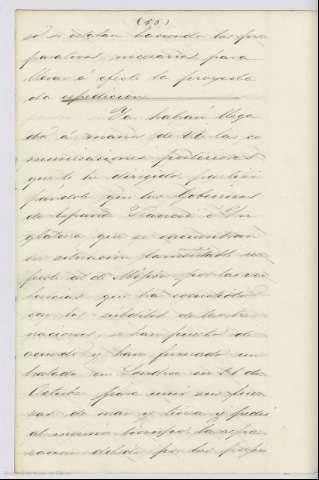 (66)
sal se estan haciendo los pre
parativos necesarios para
llevar á efecto la proyecta
da espedicion
Ya habrán llega
do á manos de V.E. las co
municaciones posteriores
que le he dirigido partici
pándole que los Gobiernos
de España Francia é In
glaterra que se encuentran
en situacion lamentable res
pecto al de Méjico por las vio
lencias que ha cometido
con los subditos de las tres
naciones, se han puesto de
acuerdo y han firmado un
tratado en Londres en 31 de
Octubre para unir sus fuer
zas de mar y tierra y pedir
al mismo tiempo la repa
racion debida por los perjui